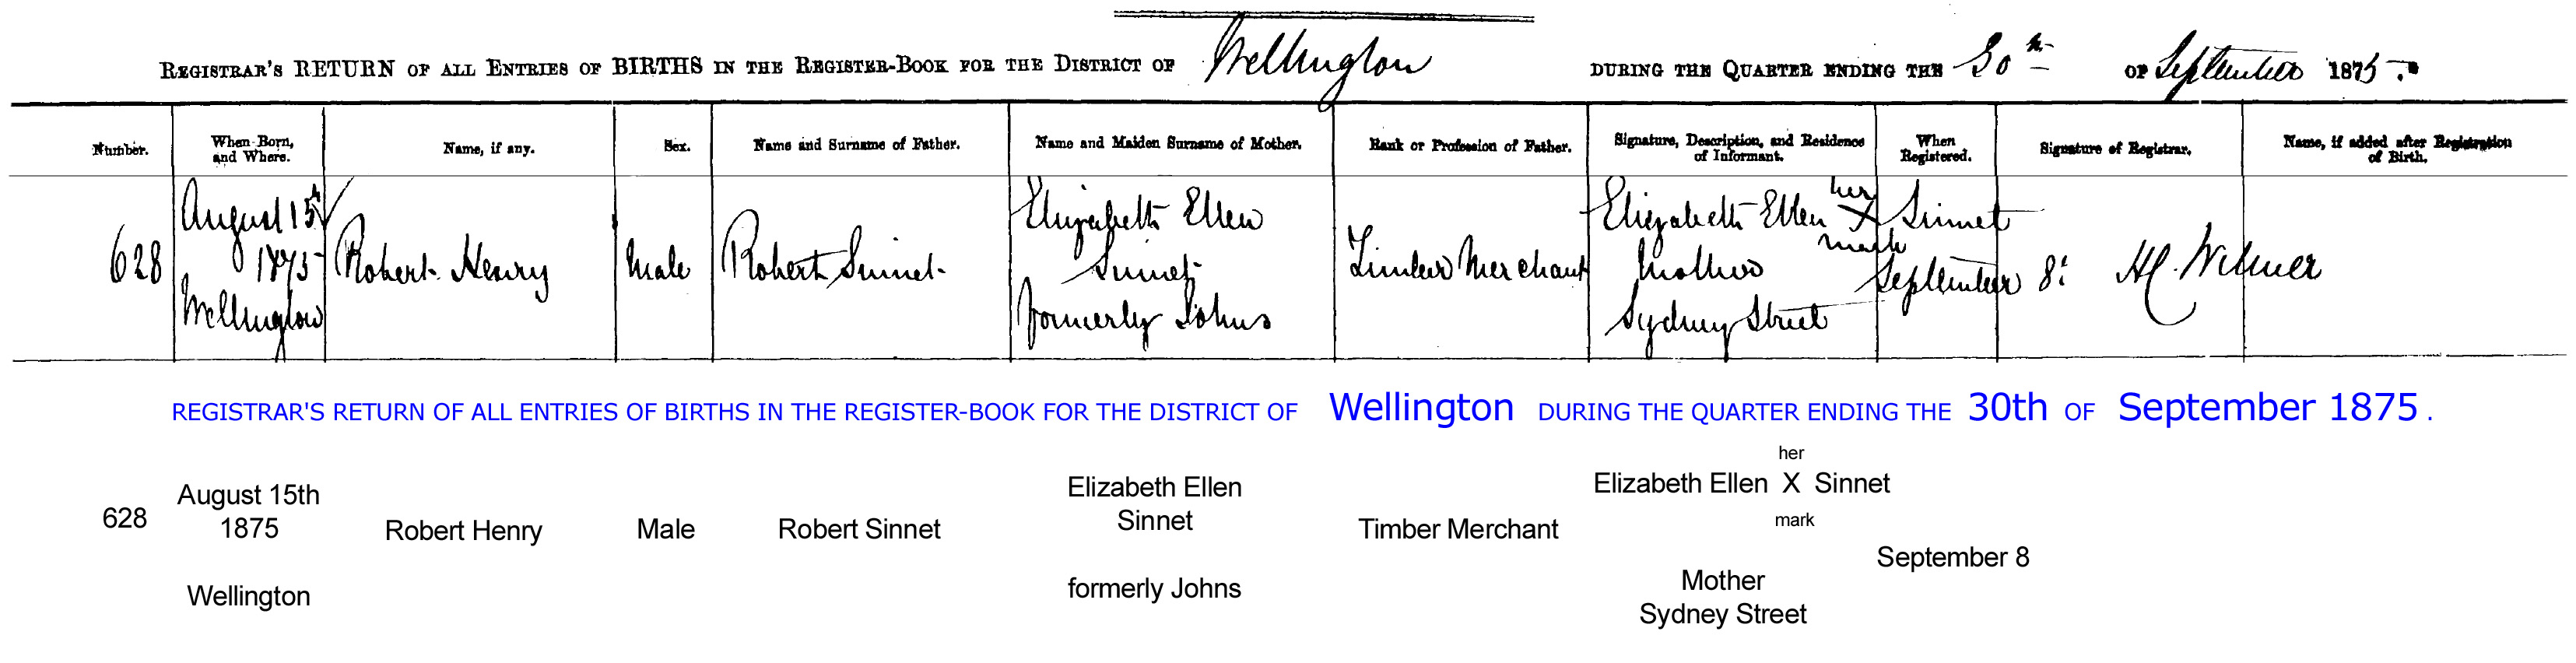 REGISTRAR'S RETURN OF ALL ENTRIES OF BIRTHS IN THE REGISTER-BOOK FOR THE DISTRICT OF Wellington DURING THE QUARTER ENDING THE 30th OF September 1875.
Number.
When Born,
and Where.
Name, if any.
Sex.
Name and Surname of Father.
Name and Maiden Surname of Mother.
Rank or Profession of Father.
Signature, Description, and Residence
of Informant.
When
Registered.
Signature of Registrar.
Name, if added after Registration
of Birth.
628
August 15th
1875
Wellington
Robert Henry
Male
Robert Sinnet
Elizabeth Ellen
Sinnet
formerly Johns
Timber Merchant
her
Elizabeth Ellen X Sinnet
mark
Mother
Sydney Street
September 8
REGISTRAR'S RETURN OF ALL ENTRIES OF BIRTHS IN THE REGISTER-BOOK FOR THE DISTRICT OF Wellington DURING THE QUARTER ENDING THE 30th OF September 1875 .
628
August 15th
1875
Wellington
Robert Henry
Male
Robert Sinnet
Elizabeth Ellen
Sinnet
formerly Johns
Timber Merchant
her
Elizabeth Ellen X Sinnet
mark
Mother
Sydney Street
September 8